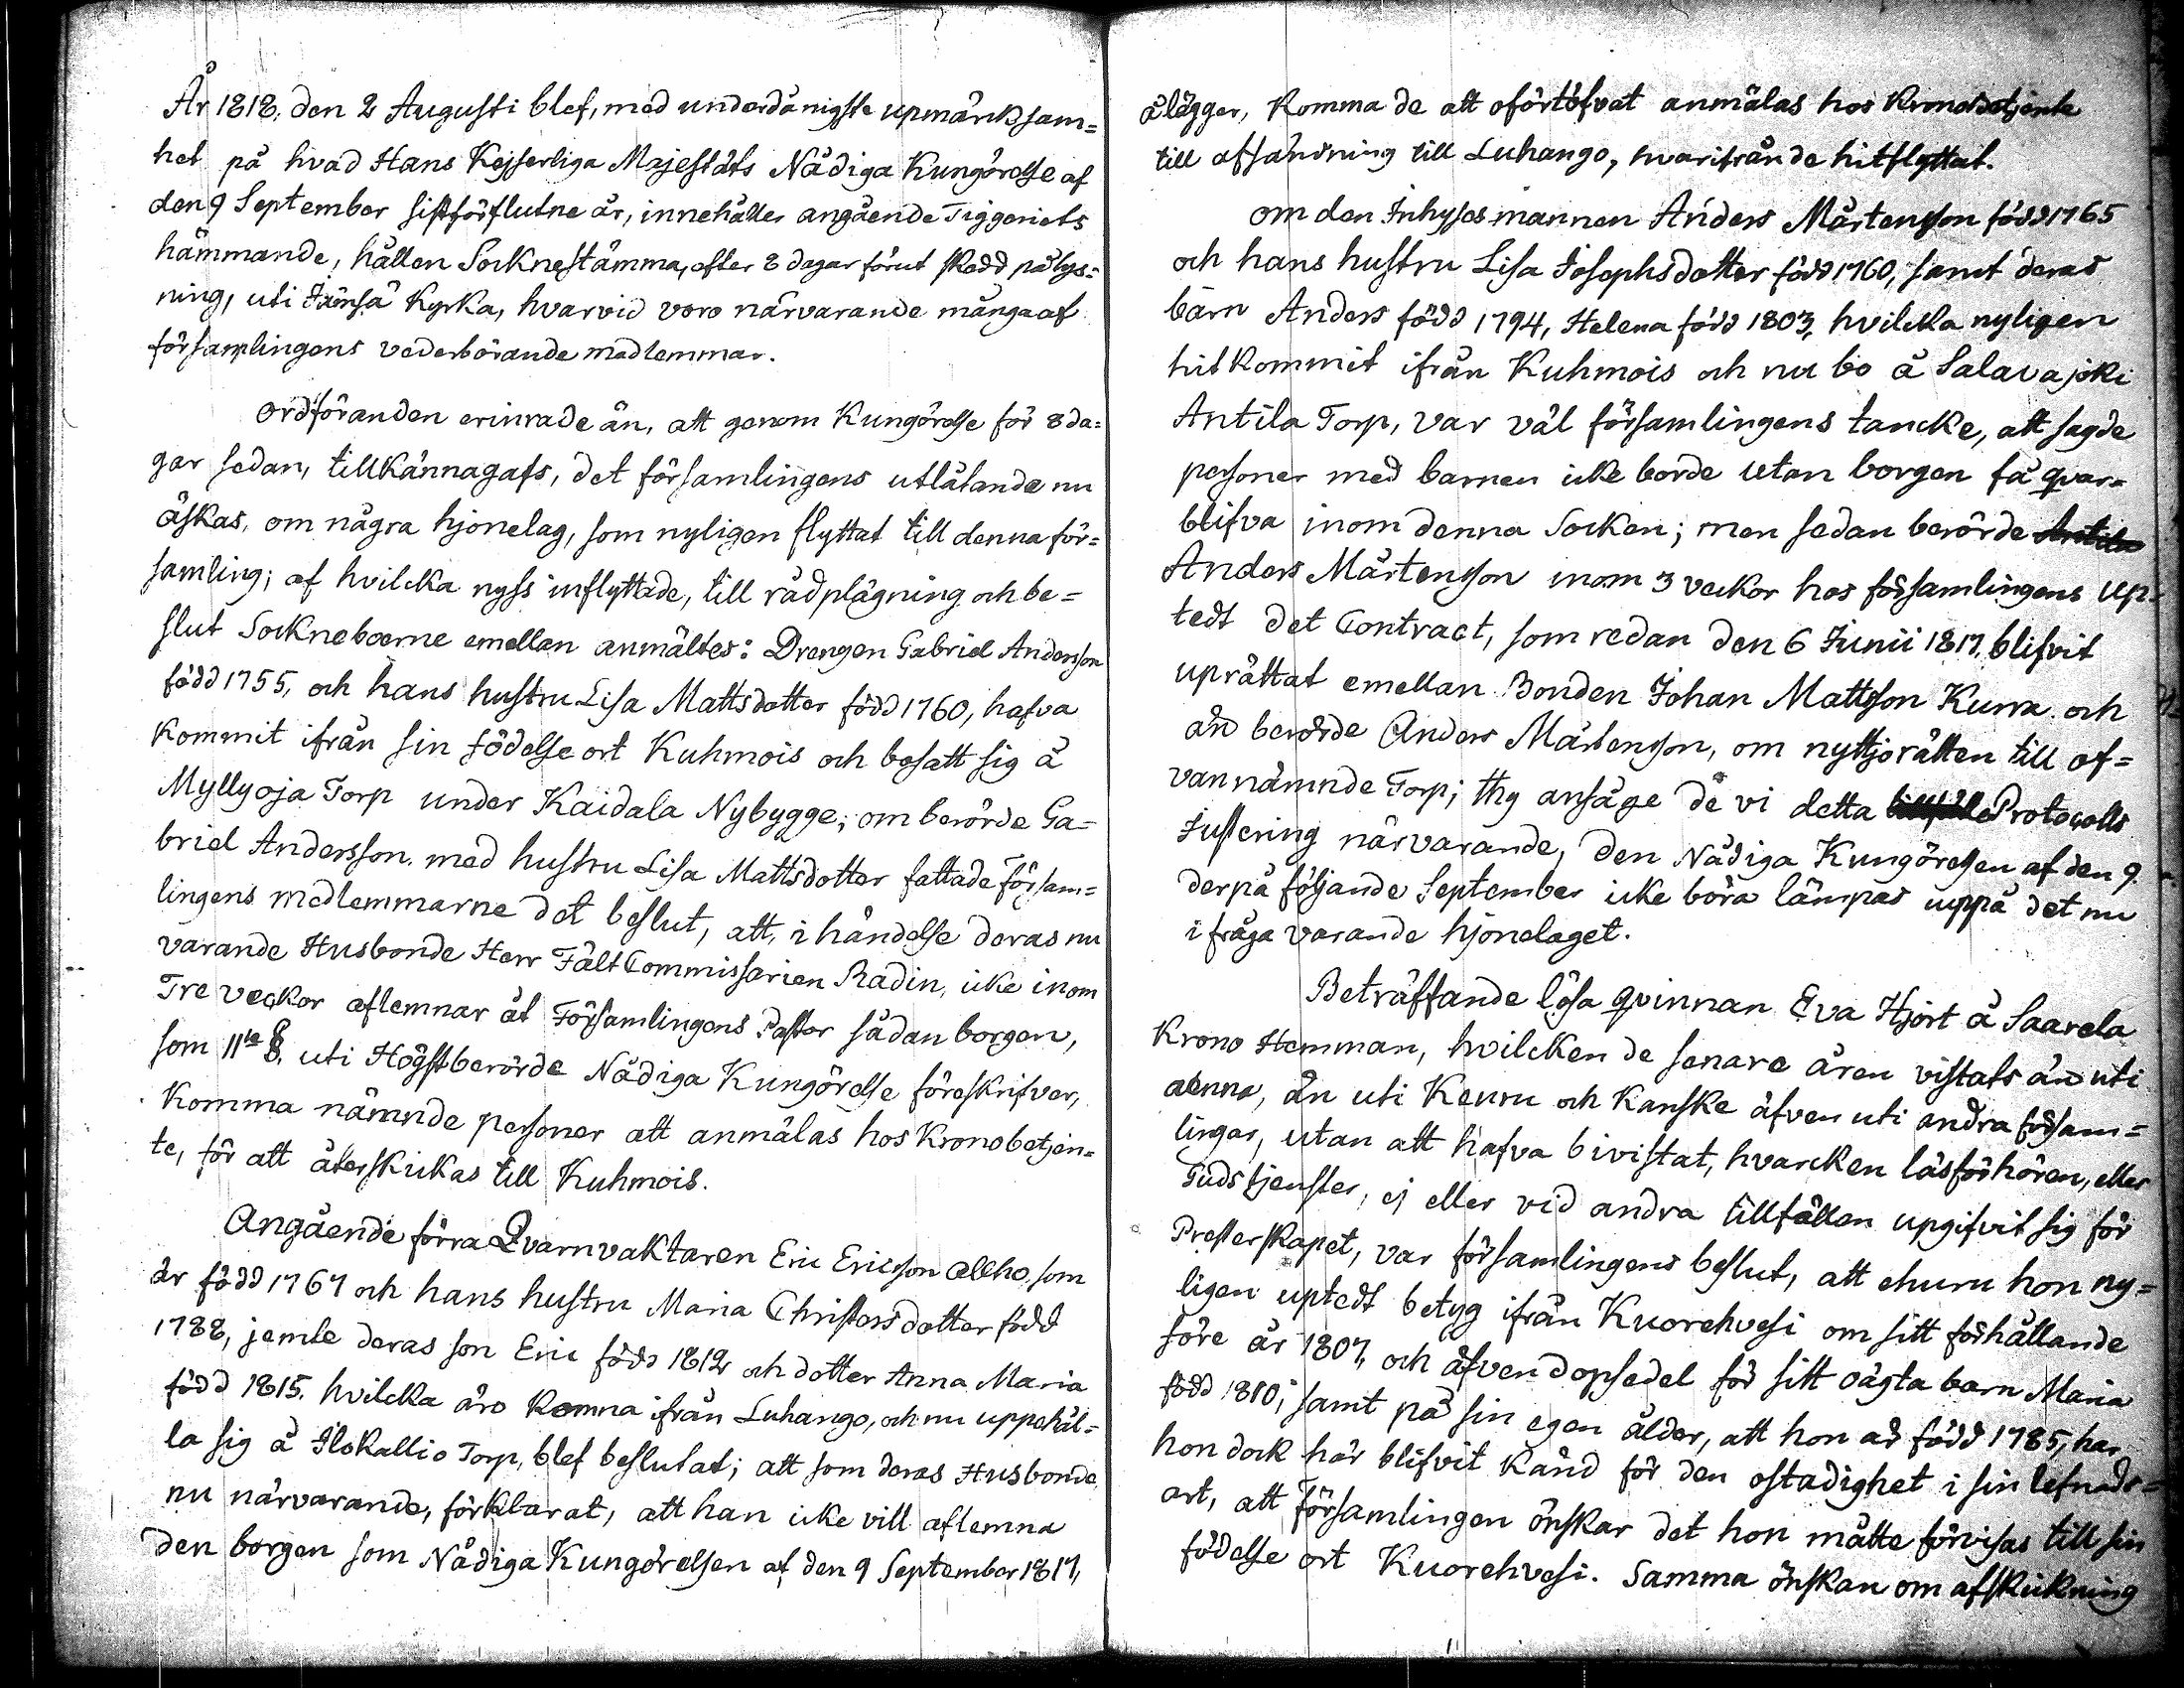 År 1818, den 2 Augusti blef, med underdånigste upmärksam=
het på hvad Hans Kejserliga Majestäts Nådiga Kungörelse af
den 9 September sistförflutne år, innehåller angående Tiggeriets
hämmande, hållen Socknestämma, efter 8 dagar förut skedd pålys=
ning, uti Jämsä Kyrka, hvarvid voro närvarande många af
församlingens vederbörande medlemmar.
Ordföranden erinrade än, att genom Kungörelse för 8 da=
gar sedan, tillkännagafs, det församlingens utlåtande nu
äskas, om några hjonelag, som nyligen flyttat till denna för=
samling; af hvilcka nyss inflyttade, till rådplägning och be=
slut Sockneboerne emellan anmältes: Drengen Gabriel Andersson
född 1755, och hans hustru Lisa Mattsdotter född 1760, hafva
kommit ifrån sin födelse ort Kuhmois och bosatt sig å
Myllyoja Torp under Kaidala Nybygge; om berörde Ga=
briel Andersson med hustru Lisa Mattsdotter fattade Försam=
lingens medlemmarne det beslut, att, i händelse deras nu
varande Husbonde Herr FältCommissarien Radin, icke inom
Tre veckor aflemnar åt Församlingens Pastor sådan borgen,
som 11te §. uti Högstberörde Nådiga Kungörelse föreskrifver,
komma nämnde personer att anmälas hos Kronobetjen=
te, för att återskickas till Kuhmois.
Angående förra Qvarnvaktaren Eric Ericsson Alho, som
är född 1767 och hans hustru Maria Christersdotter född
1788, jemte deras son Eric född 1812 och dotter Anna Maria
född 1815. hvilcka äro komna ifrån Luhango, och nu uppehål=
la sig å Ilokallio Torp, blef beslutat; att som deras Husbonde,
nu närvarande, förklarat, att han icke vill aflemna
den borgen som Nådiga Kungörelsen af den 9 September 1817,
ålägger, komma de att oförtöfvat anmälas hos Kronobetjente
till afsändning till Luhango, hvarifrån de hitflyttat.
om den Inhyses mannen Anders Mårtensson född 1765
och hans hustru Lisa Josephsdotter född 1760, samt deras
barn Anders född 1794, Helena född 1803, hvilcka nyligen
hitkommit ifrån Kuhmois och nu bo å Salavajoki
Antila Torp, var väl församlingens tancke, att sagde
personer med barnen icke borde utan borgen få qvar=
blifva inom denna Socken; men sedan berörde Antila
Anders Mårtensson inom 3 veckor hos församlingens up=
tedt det Contract, som redan den 6 Junii 1817, blifvit
uprättat emellan Bonden Johan Mattsson Kurra och
än berörde Anders Mårtensson, om nyttjorätten till of=
vannämnde Torp; thy ansåge de vi detta Protocolls
Justering närvarande, den Nådiga Kungörelsen af den 9
derpå följande September icke böra lämpas uppå det nu
i fråga varande hjonelaget.
Beträffande lösa qvinnan Eva Hjort å Saarela
Krono Hemman, hvilcken de senare åren vistats än uti
denna, än uti Keuru och kanske äfven uti andra försam=
lingar, utan att hafva bivistat, hvarcken läsförhören, eller
Gudstjenster, ej eller vid andra tillfällen upgifvit sig för
Presterskapet, var församlingens beslut, att ehuru hon ny=
ligen uptedt betyg ifrån Kuorehvesi om sitt förhållande
före år 1807, och äfven dopsedel för sitt oägta barn Maria
född 1810; samt på sin egen ålder, att hon är född 1785, har
hon dock här blifvit känd för den ostadighet i sin lefnads=
art, att Församlingen önskar det hon måtte förvisas till sin
födelse ort Kuorehvesi. Samma önskan om afskickning